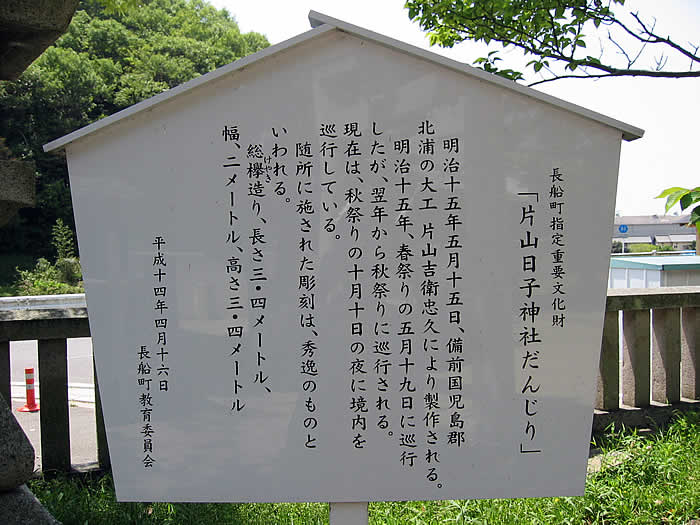 長船町指定重要文化財
「片山日子神社だんじり」
明治十五年五月十五日、備前国児島郡
北浦の大工 片山吉衛忠久により製作される。
明治十五年、春祭りの五月十九日に巡行
したが、翌年から秋祭りに巡行される。
現在は、秋祭りの十月十日の夜に境内を
巡行している。
随所に施された彫刻は、秀逸のものと
いわれる。
総欅造り、長さ三・四メートル、
けやき
幅、二メートル、高さ三・四メートル
平成十四年四月十六日
長船町教育委員会